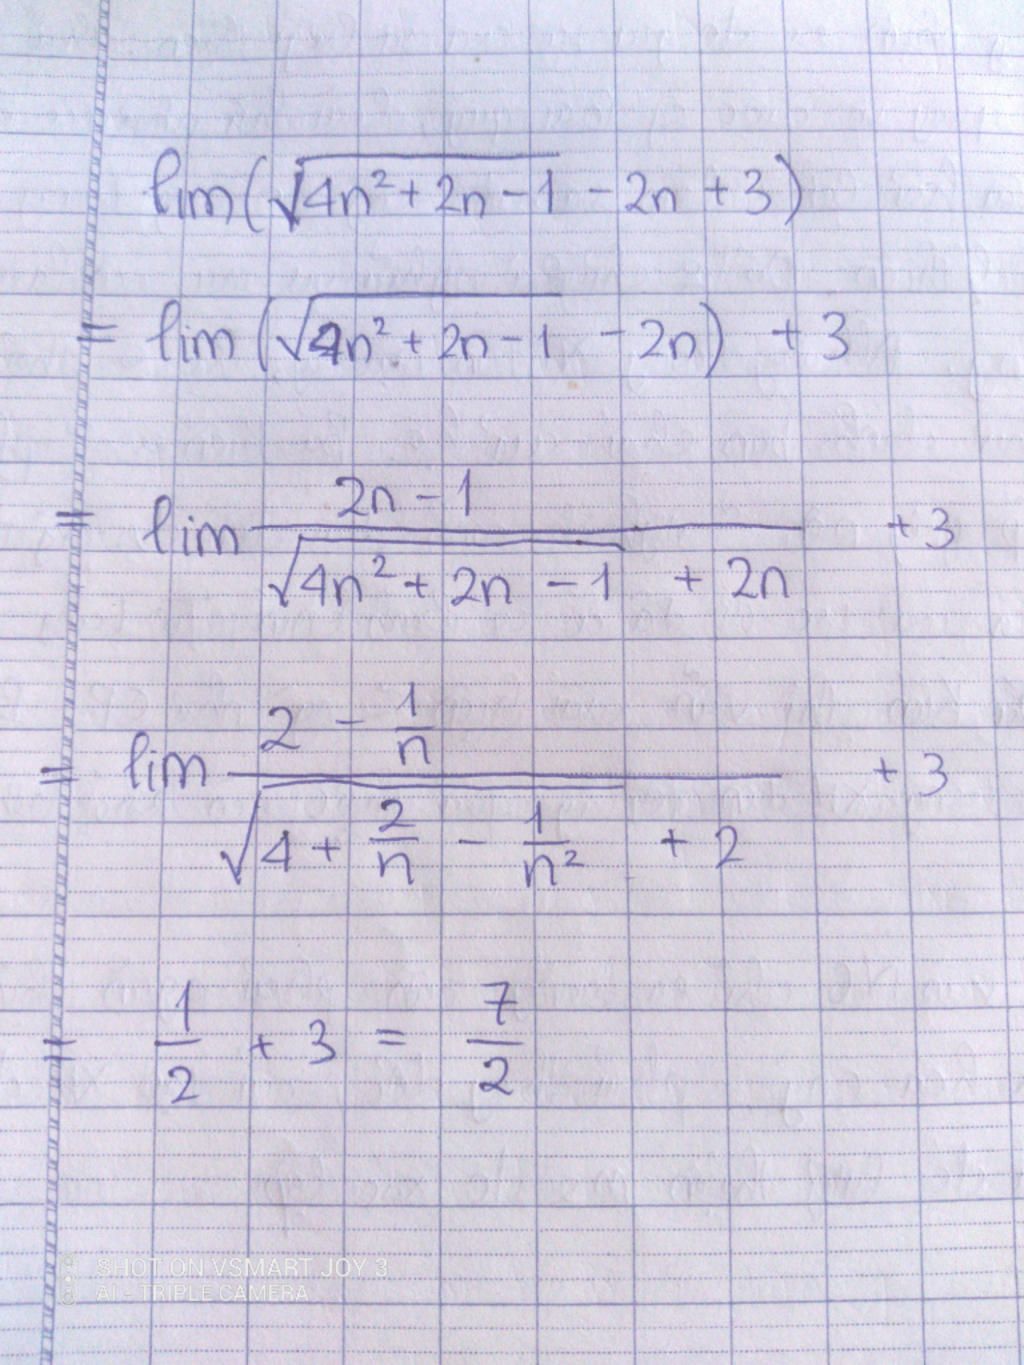 lim(√(4n² + 2n - 1) - 2n + 3)
= lim (√(4n² + 2n - 1) - 2n) + 3
= lim (2n - 1)/(√(4n² + 2n - 1) + 2n) + 3
= lim (2 - 1/n)/(√(4 + 2/n - 1/n²) + 2) + 3
= 1/2 + 3 = 7/2
SHOT ON VSMART JOY 3
AI - TRIPLE CAMERA